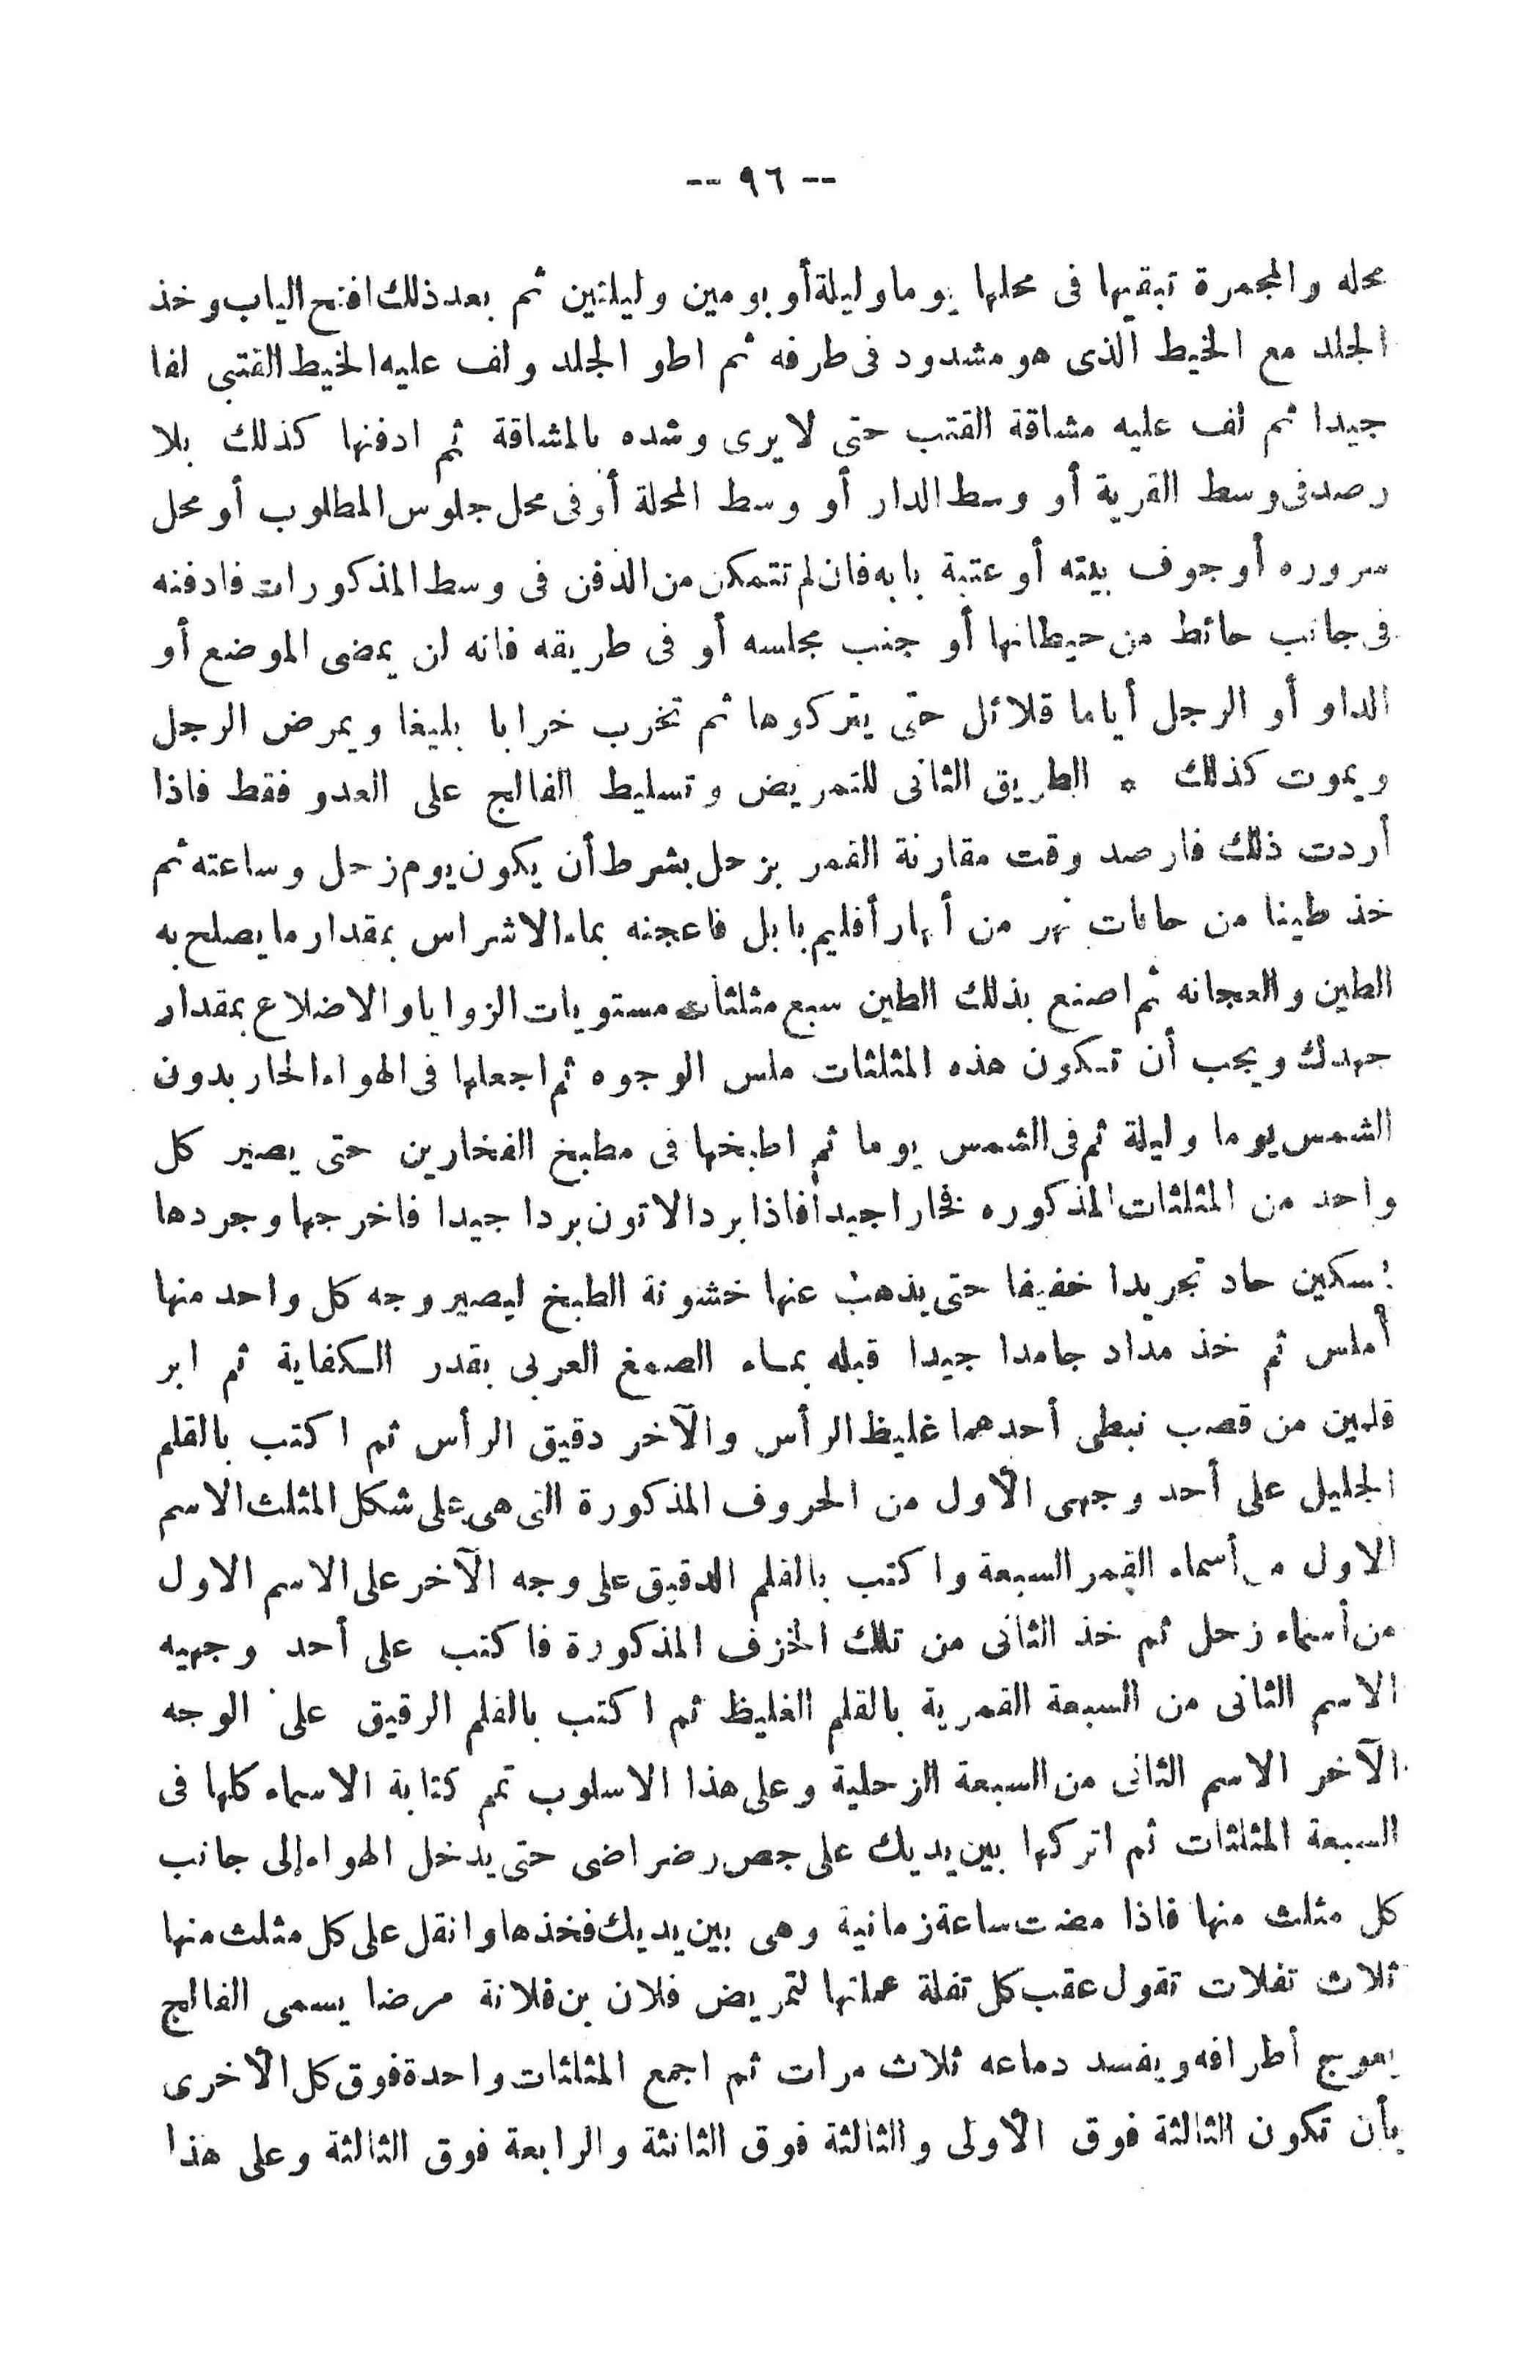 -- ٩٦ --
محله والمجمرة تبقيها فى محلها يوما وليلة أو يومين وليلتين ثم بعد ذلك افتح الباب وخذ
الجلد مع الخيط الذى هو مشدود فى طرفه ثم اطو الجلد ولف عليه الخيط القنبى لفا
جيدا ثم لف عليه مشاقة القنب حتى لا يرى وشده بالمشاقة ثم ادفنها كذلك بلا
رصد فى وسط القرية أو وسط الدار أو وسط المحلة أو فى محل جلوس المطلوب أو محل
سروره أو جوف بيته أو عتبة بابه فان لم تتمكن من الدفن فى وسط المذكورات فادفنه
فى جانب حائط من حيطانها أو جنب مجلسه أو فى طريقه فانه لن يمضى الموضع أو
الداو أو الرجل أياما قلائل حتى يتركوها ثم تخرب خرابا بليغا ويمرض الرجل
ويموت كذلك * الطريق الثانى للتمريض وتسليط الفالج على العدو فقط فاذا
أردت ذلك فارصد وقت مقارنة القمر بزحل بشرط أن يكون يوم زحل وساعته ثم
خذ طينا من حافات نهر من أنهار أقليم بابل فاعجنه بماء الاشراس بمقدار ما يصلح به
الطين والعجانه ثم اصنع بذلك الطين سبع مثلثات مستويات الزوايا والاضلاع بمقدار
جهدك ويجب أن تكون هذه المثلثات ملس الوجوه ثم اجعلها فى الهواء الحار بدون
الشمس يوما وليلة ثم فى الشمس يوما ثم اطبخها فى مطبخ الفخارين حتى يصير كل
واحد من المثلثات المذكوره فخارا جيدا فاذا برد الاتون بردا جيدا فاخرجها وجردها
بسكين حاد تجريدا خفيفا حتى يذهب عنها خشونة الطبخ ليصير وجه كل واحد منها
أملس ثم خذ مداد جامدا جيدا قبله بماء الصمغ العربى بقدر الكفاية ثم ابر
قلمين من قصب نبطى أحدهما غليظ الرأس والآخر دقيق الرأس ثم اكتب بالقلم
الجليل على أحد وجهى الأول من الحروف المذكورة التى هى على شكل المثلث الاسم
الاول من أسماء القمر السبعة واكتب بالقلم الدقيق على وجه الآخر على الاسم الاول
من أسماء زحل ثم خذ الثانى من تلك الخزف المذكورة فاكتب على أحد وجهيه
الاسم الثانى من السبعة القمرية بالقلم الغليظ ثم اكتب بالقلم الرقيق على الوجه
الآخر الاسم الثانى من السبعة الزحلية وعلى هذا الاسلوب تمم كتابة الاسماء كلها فى
السبعة المثلثات ثم اتركها بين يديك على جص رضراضى حتى يدخل الهواء إلى جانب
كل مثلث منها فاذا مضت ساعة زمانية وهى بين يديك فخذها واتفل على كل مثلث منها
ثلاث تفلات تقول عقب كل تفلة عملتها لتمريض فلان بن فلانة مرضا يسمى الفالج
يعوج أطرافه ويفسد دماعه ثلاث مرات ثم اجمع المثلثات واحدة فوق كل الأخرى
بأن تكون الثالثة فوق الأولى والثالثة فوق الثانثة والرابعة فوق الثالثة وعلى هذا